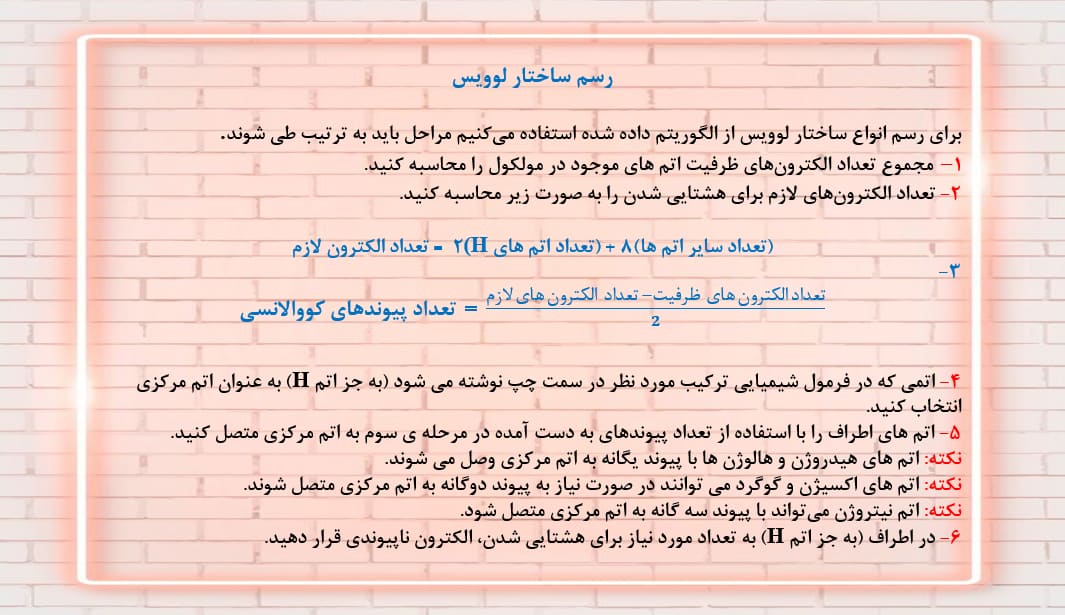 رسم ساختار لوویس
برای رسم انواع ساختار لوویس از الگوریتم داده شده استفاده می‌کنیم مراحل باید به ترتیب طی شوند.
۱- مجموع تعداد الکترون‌های ظرفیت اتم های موجود در مولکول را محاسبه کنید.
۲- تعداد الکترون‌های لازم برای هشتایی شدن را به صورت زیر محاسبه کنید.
(تعداد سایر اتم ها)۸ + (تعداد اتم های H)۲ = تعداد الکترون لازم
۳-
تعداد الکترون های ظرفیت - تعداد الکترون های لازم
= تعداد پیوندهای کووالانسی
2
۴- اتمی که در فرمول شیمیایی ترکیب مورد نظر در سمت چپ نوشته می شود (به جز اتم H) به عنوان اتم مرکزی
انتخاب کنید.
۵- اتم های اطراف را با استفاده از تعداد پیوندهای به دست آمده در مرحله ی سوم به اتم مرکزی متصل کنید.
نکته: اتم های هیدروژن و هالوژن ها با پیوند یگانه به اتم مرکزی وصل می شوند.
نکته: اتم های اکسیژن و گوگرد می توانند در صورت نیاز به پیوند دوگانه به اتم مرکزی متصل شوند.
نکته: اتم نیتروژن می‌تواند با پیوند سه گانه به اتم مرکزی متصل شود.
۶- در اطراف (به جز اتم H) به تعداد مورد نیاز برای هشتایی شدن، الکترون ناپیوندی قرار دهید.